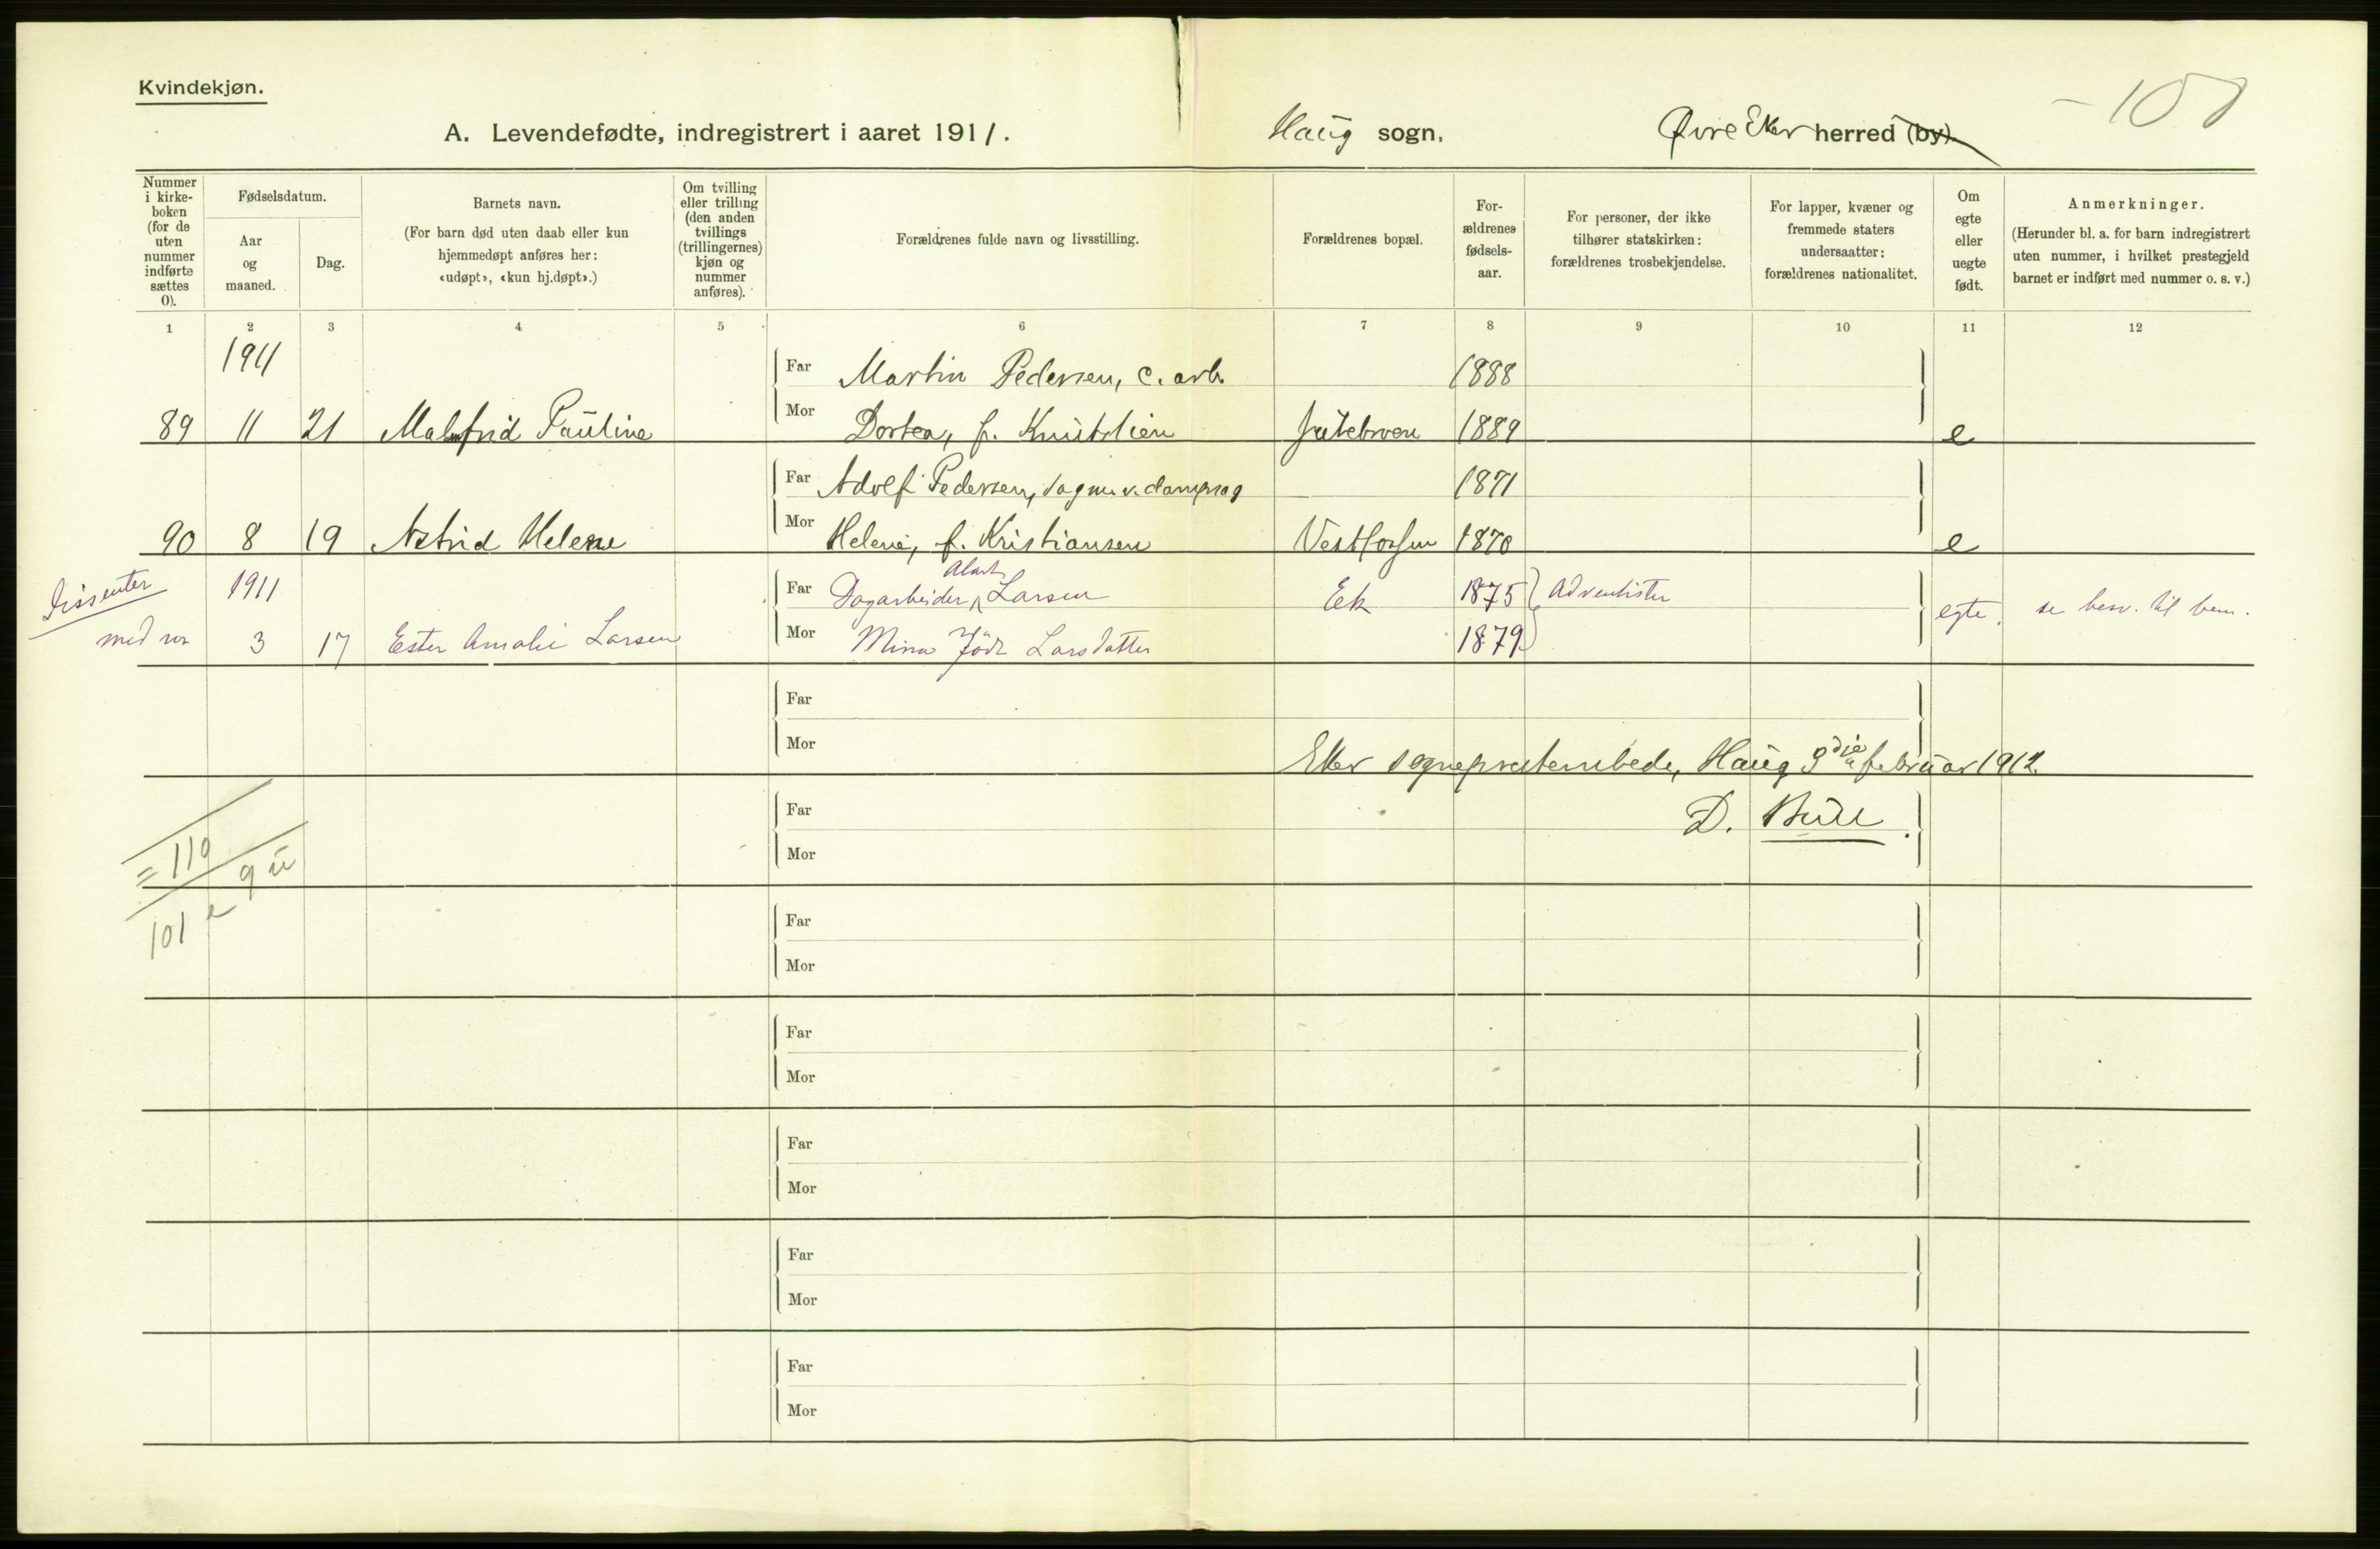 Kvindekjøn.
A. Levendefødte, indregistrert i aaret 1911.
Haug sogn.
Øvre Eker herred (by).
Nummer i kirke-boken (for de uten nummer indførte sættes 0).
Fødselsdatum.
Aar og maaned.
Dag.
Barnets navn.
(For barn død uten daab eller kun hjemmedøpt anføres her: «udøpt», «kun hj.døpt».)
Om tvilling eller trilling (den anden tvillings (trillingernes) kjøn og nummer anføres).
Forældrenes fulde navn og livsstilling.
Forældrenes bopæl.
For-ældrenes fødsels-aar.
For personer, der ikke tilhører statskirken: forældrenes trosbekjendelse.
For lapper, kvæner og fremmede staters undersaatter: forældrenes nationalitet.
Om egte eller uegte født.
Anmerkninger.
(Herunder bl. a. for barn indregistrert uten nummer, i hvilket prestegjeld barnet er indført med nummer o. s. v.)
1 2 3 4 5 6 7 8 9 10 11 12
1911
Far Martin Pedersen, c. arb. 1888
89 11 21 Malmfrid Pauline Mor Dortea, f. Knutslien 1889 e
Far Adolf Pedersen, sagm. v. dampsag 1871
90 8 19 Astrid Helene Mor Helene, f. Kristiansen Vestfossen 1870 e
Dissenter 1911 Far Dagarbeider Larsen Ek 1875 Adventister egte. se til
med 3 17 Ester Amalie Larsen Mor Mina født Larsdatter 1879
Far
Mor
Eker sogneprestembede, Haug 9die februar 1912.
D. Bull.
Far
Mor
= 110
9 u
101 e
Far
Mor
Far
Mor
Far
Mor
Far
Mor
Far
Mor